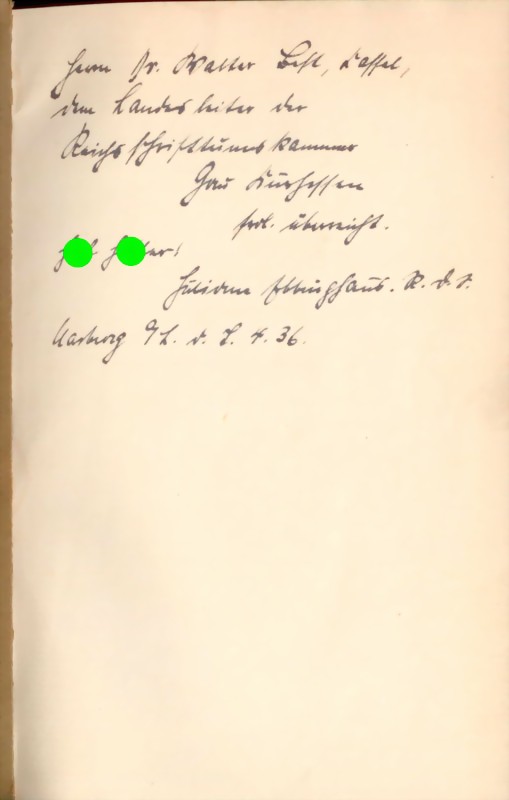 Herrn Dr. Walter Best, Kassel,
dem Landesleiter der
Reichsschrifttumskammer
Gau Kurhessen
frdl. überreicht.
Juliane Ebbinghaus. R. d. S.
Marburg a/L. d. 2. 4. 36.